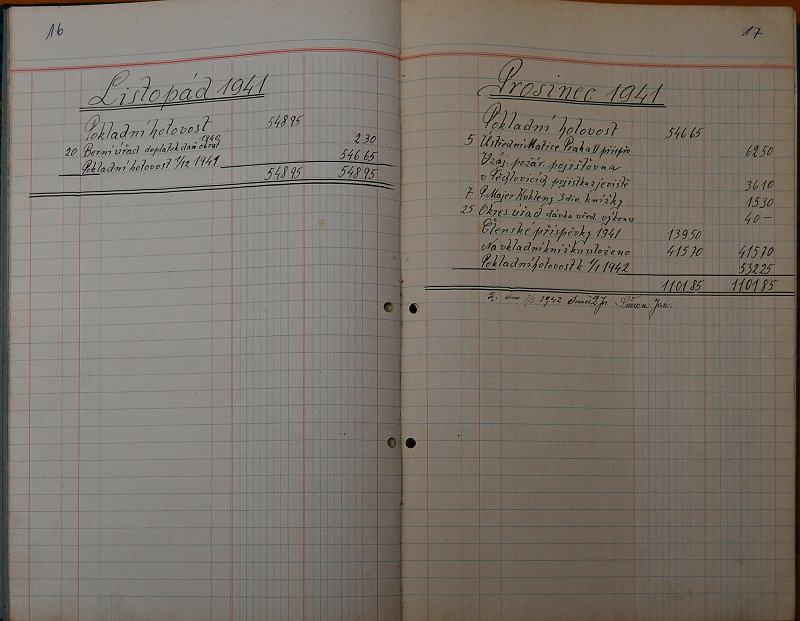 16
Listopád 1941
Pokladní hotovost 548 95
1940
20 Berní úřad doplatek daň obrat 2 30
Pokladní hotovost 1/12 1941 546 65
548 95 548 95
17
Prosinec 1941
Pokladní hotovost 546 65
5 Ústřední Matice Praha II příspěv. 62 50
Vzáj. požár. pojišťovna
v Pědlovicích pojistka zjeviště 36 10
7 P. Majer Kukleny 3 div. knížky 15 30
25 Okres. úřad dávka úřed. výkonu 40 –
Členské příspěvky 1941 139 50
Na vkladní knížku uloženo 415 70 415 70
Pokladní hotovost k 1/1 1942 532 25
1101 85 1101 85
dne 1/3 1942 Jan.